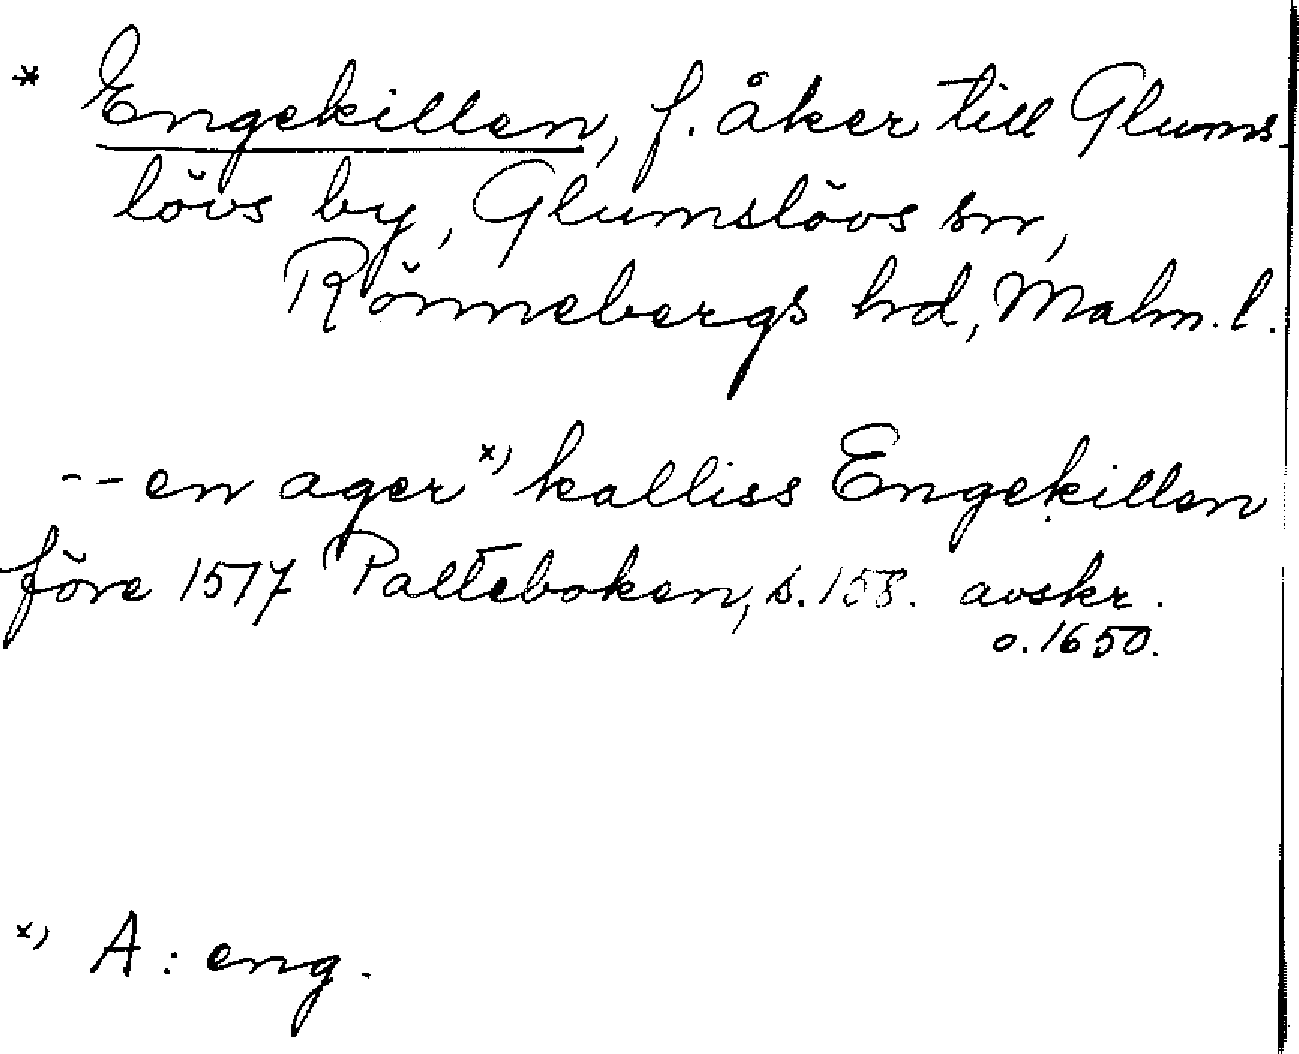 * Engekillen, f. åker till Glums-
lövs by, Glumslövs sn,
Rönnebergs hd, Malm. l.
-- en ager x) kalliss Engekillen
före 1517 Palteboken, s. 158. avskr.
o. 1650.
x) A: eng.